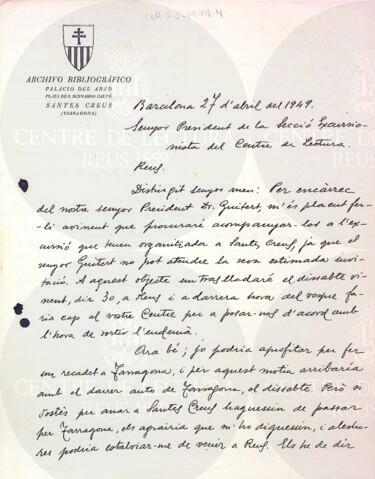 CLR-5-5-1949-4
ARCHIVO BIBLIOGRÁFICO
PALACIO DEL ABAD
PLAZA DE S. BERNARDO CALVÓ
SANTES CREUS
(TARRAGONA)
Barcelona 27 d'abril del 1949.
Senyor President de la Secció Excursio-
nista del Centre de Lectura.
Reus.
Distingit senyor meu: Per encàrrec
del nostre senyor President Dr. Guitert, m'és plaent fer-
li avinent que procuraré acompanyar-los a l'ex-
cursió que tenen organitzada a Santes Creus, ja que el
senyor Guitert no pot atendre la seva estimada invi-
tació. A aquest objecte em traslladaré el dissabte vi-
nent, dia 30, a Reus i a darrera hora del vespre fa-
ria cap al vostre Centre per a posar-nos d'acord amb
l'hora de sortir l'endemà.
Ara bé; jo podria aprofitar per fer
un recadet a Tarragona, i per aquest motiu arribaria
amb el darrer auto de Tarragona, el dissabte. Però si
vostès per anar a Santes Creus haguessin de passar
per Tarragona, els agrairia que m'ho diguessin, i aleshe-
res podria estalviar-me de venir a Reus. Els he de dir
CENTRE DE LECTURA
REUS 1859